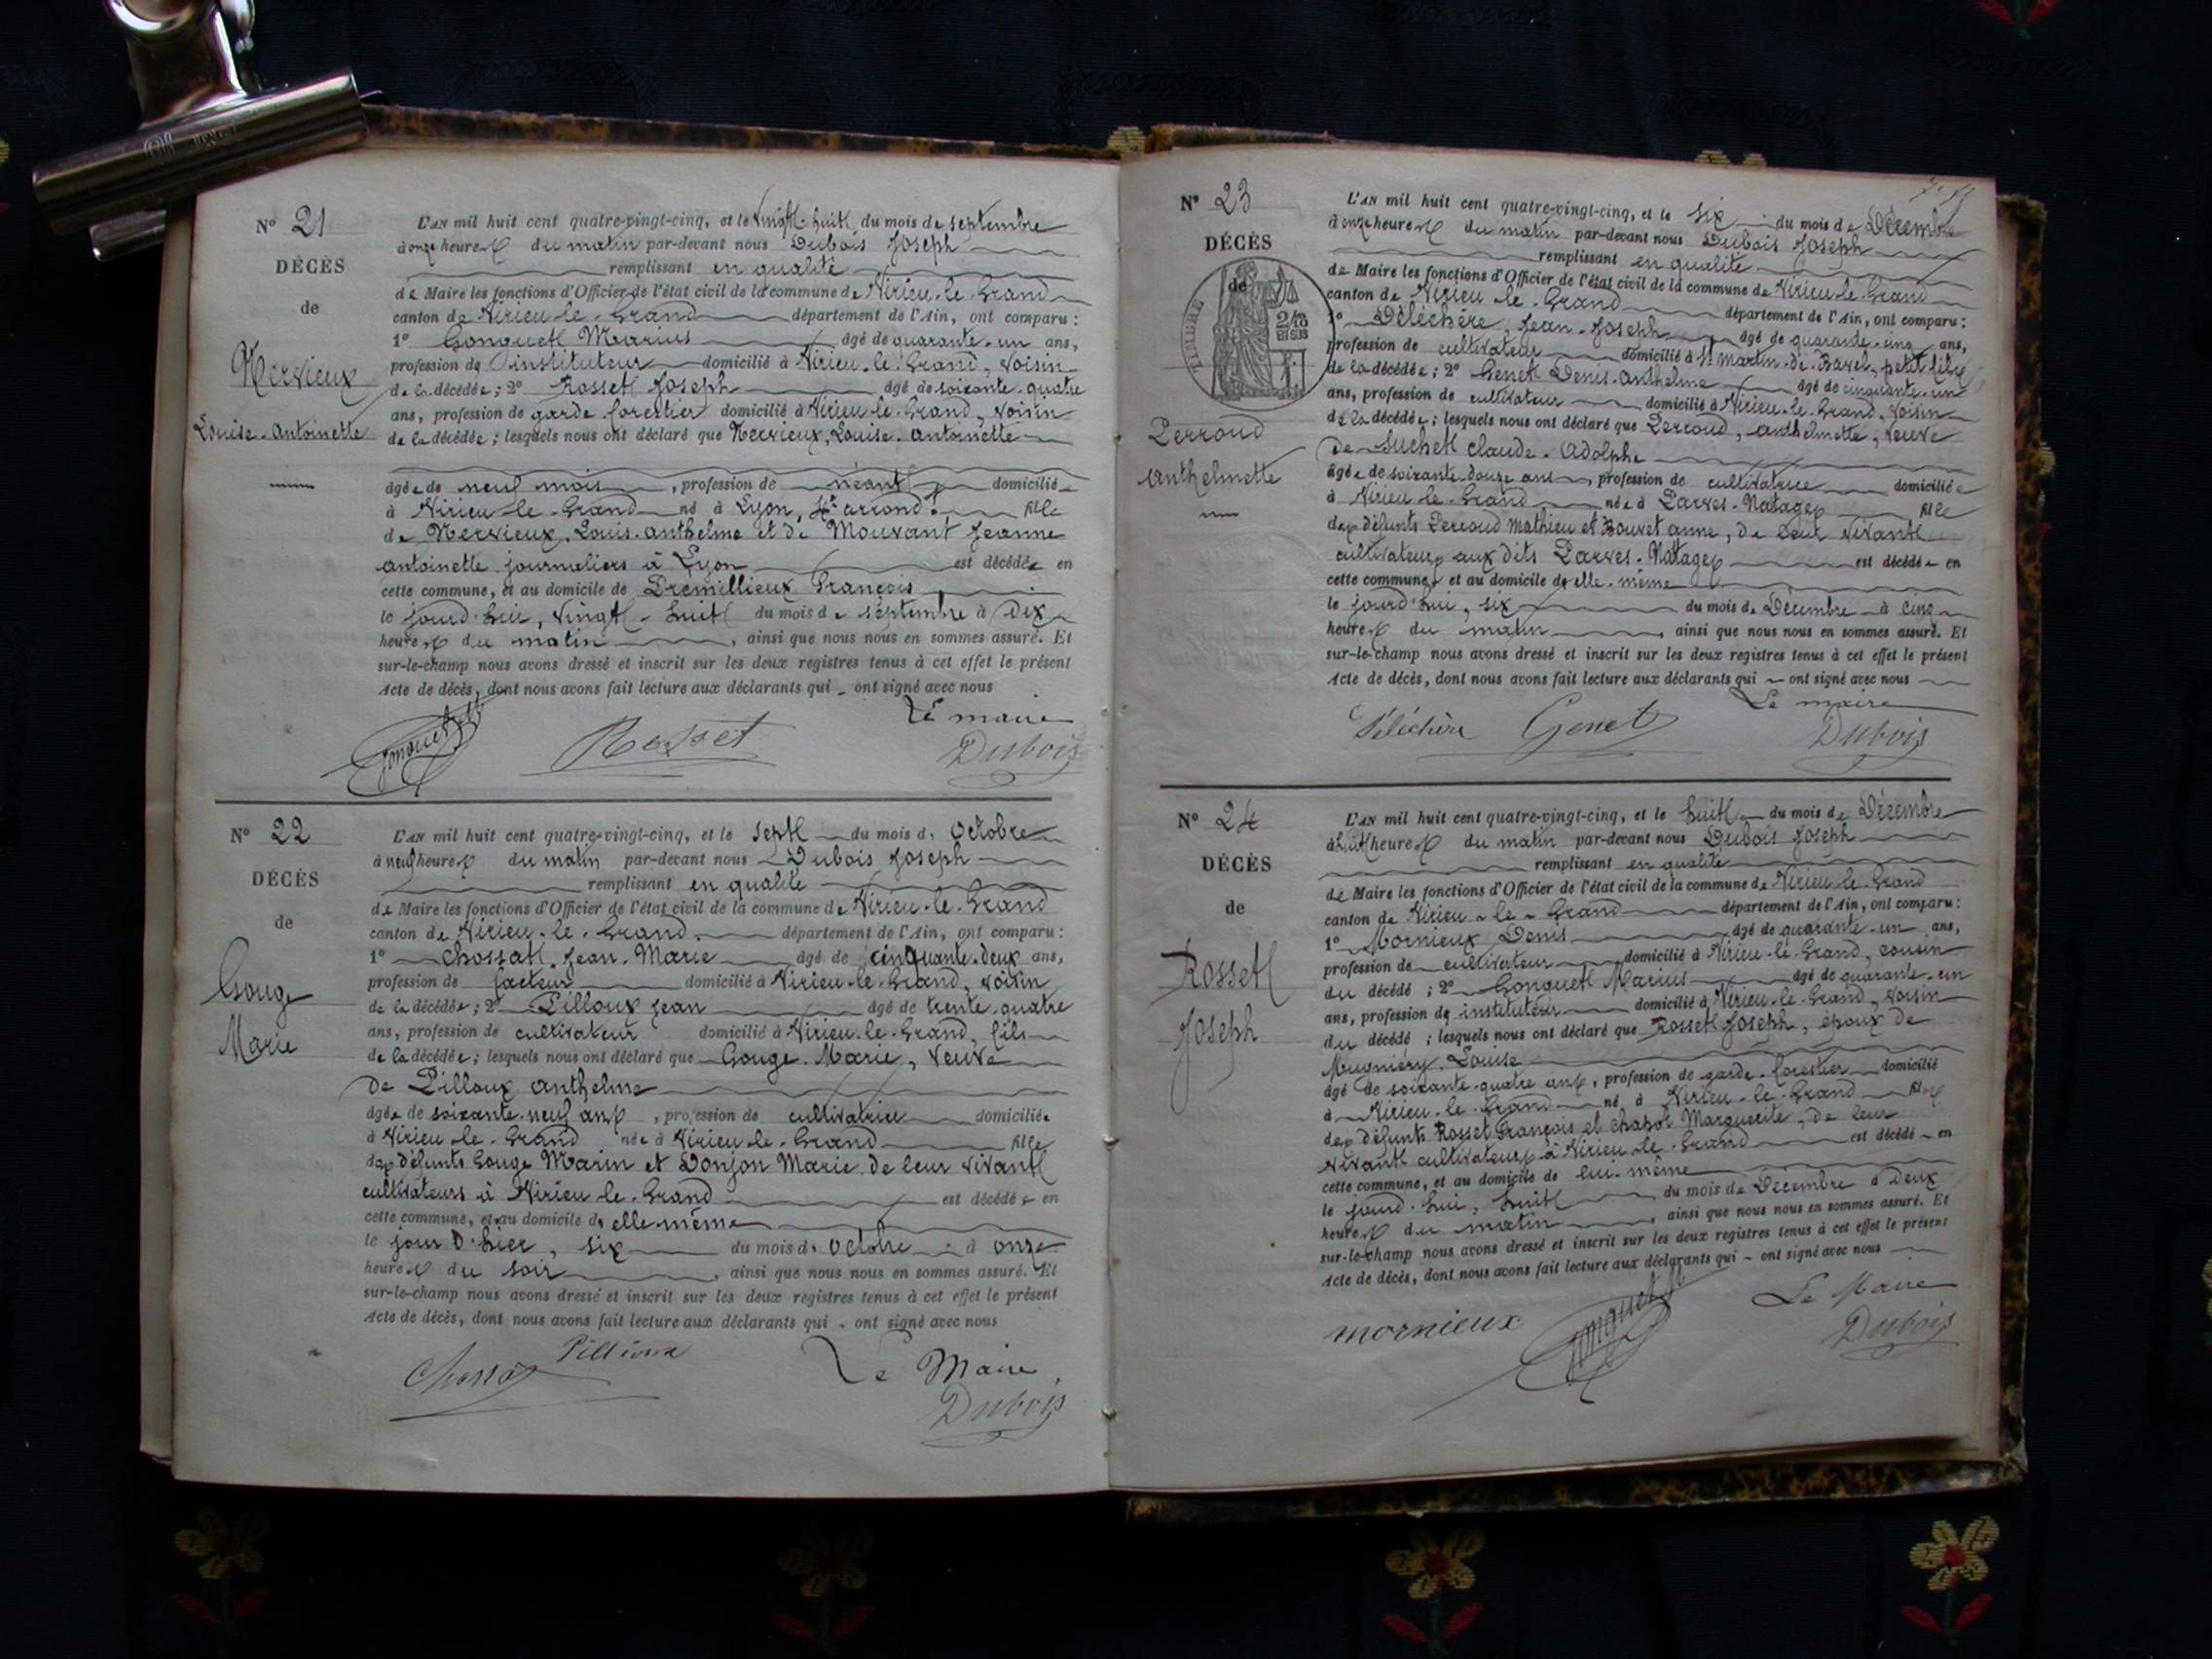 N° 21
DÉCÈS
de
Nervieux
Louise-Antoinette
L'AN mil huit cent quatre-vingt-cinq, et le vingt-huit du mois de septembre
à onze heures du matin par-devant nous Dubois Joseph
remplissant en qualité
de Maire les fonctions d'Officier de l'état civil de la commune de Virieu-le-Grand
canton de Virieu-le-Grand département de l'Ain, ont comparu :
1° Gonguet Marius âgé de quarante-un ans,
profession de instituteur domicilié à Virieu-le-Grand, voisin
de la décédée ; 2° Rosset Joseph âgé de soixante-quatre
ans, profession de garde forestier domicilié à Virieu-le-Grand, voisin
de la décédée ; lesquels nous ont déclaré que Nervieux, Louise-Antoinette
âgée de neuf mois, profession de néant domiciliée
à Virieu-le-Grand né à Lyon, arrond.t fille
de Nervieux, Louis-Anthelme et de Mouvant Jeanne
Antoinette journaliers à Lyon est décédée en
cette commune, et au domicile de Premillieux François
le jourd'hui, vingt-huit du mois de septembre à dix
heures du matin, ainsi que nous nous en sommes assuré. Et
sur-le-champ nous avons dressé et inscrit sur les deux registres tenus à cet effet le présent
Acte de décès, dont nous avons fait lecture aux déclarants qui ont signé avec nous
Le maire
Gonguet Rosset Dubois
N° 22
DÉCÈS
de
Gouge
Marie
L'AN mil huit cent quatre-vingt-cinq, et le sept du mois d' Octobre
à neuf heures du matin par-devant nous Dubois Joseph
remplissant en qualité
de Maire les fonctions d'Officier de l'état civil de la commune de Virieu-le-Grand
canton de Virieu-le-Grand département de l'Ain, ont comparu :
1° Chossat Jean-Marie âgé de cinquante-deux ans,
profession de facteur domicilié à Virieu-le-Grand, voisin
de la décédée ; 2° Pilloux Jean âgé de trente-quatre
ans, profession de cultivateur domicilié à Virieu-le-Grand, fils
de la décédée ; lesquels nous ont déclaré que Gouge Marie, veuve
de Pilloux Anthelme
âgée de soixante-neuf ans, profession de cultivatrice domiciliée
à Virieu-le-Grand née à Virieu-le-Grand fille
des défunts Gouge Marin et Donjon Marie de leur vivant
cultivateurs à Virieu-le-Grand est décédée en
cette commune, et au domicile d' elle-même
le jour d'hier, six du mois d' Octobre à onze
heures du soir, ainsi que nous nous en sommes assuré. Et
sur-le-champ nous avons dressé et inscrit sur les deux registres tenus à cet effet le présent
Acte de décès, dont nous avons fait lecture aux déclarants qui ont signé avec nous
Chossat Pilloux Le Maire
Dubois
N° 23
DÉCÈS
de
TIMBRE
Perroud
Anthelmette
L'AN mil huit cent quatre-vingt-cinq, et le six du mois de Décembre
à onze heures du matin par-devant nous Dubois Joseph
remplissant en qualité
de Maire les fonctions d'Officier de l'état civil de la commune de Virieu-le-Grand
canton de Virieu-le-Grand département de l'Ain, ont comparu :
1° Déléchère, Jean-Joseph âgé de quarante-cinq ans,
profession de cultivateur domicilié à St Martin-de-Bavel, petit-fils
de la décédée ; 2° Genet Denis-Anthelme âgé de cinquante-un
ans, profession de cultivateur domicilié à Virieu-le-Grand, voisin
de la décédée ; lesquels nous ont déclaré que Perroud, Anthelmette, veuve
de Suchet Claude-Adolphe
âgée de soixante-douze ans, profession de cultivatrice domiciliée
à Virieu-le-Grand née à Parves-Natages fille
des défunts Perroud Mathieu et Bouvet Anne, de leur vivant
cultivateurs aux dits Parves-Natages est décédée en
cette commune, et au domicile d'elle-même
le jourd'hui, six du mois de Décembre à cinq
heures du matin, ainsi que nous nous en sommes assuré. Et
sur-le-champ nous avons dressé et inscrit sur les deux registres tenus à cet effet le présent
Acte de décès, dont nous avons fait lecture aux déclarants qui ont signé avec nous
Le maire
Déléchère Genet Dubois
N° 24
DÉCÈS
de
Rosset
Joseph
L'AN mil huit cent quatre-vingt-cinq, et le huit du mois de Décembre
à huit heures du matin par-devant nous Dubois Joseph
remplissant en qualité
de Maire les fonctions d'Officier de l'état civil de la commune de Virieu-le-Grand
canton de Virieu-le-Grand département de l'Ain, ont comparu :
1° Mornieux Denis âgé de quarante-un ans,
profession de cultivateur domicilié à Virieu-le-Grand, cousin
du décédé ; 2° Gonguet Marius âgé de quarante-un
ans, profession de instituteur domicilié à Virieu-le-Grand, voisin
du décédé ; lesquels nous ont déclaré que Rosset Joseph, époux de
Mugniéry Louise
âgé de soixante-quatre ans, profession de garde-forestier domicilié
à Virieu-le-Grand né à Virieu-le-Grand fils
des défunts Rosset François et Chapot Marguerite, de leur
vivant cultivateurs à Virieu-le-Grand est décédé en
cette commune, et au domicile de lui-même
le jourd'hui, huit du mois de Décembre à deux
heures du matin, ainsi que nous nous en sommes assuré. Et
sur-le-champ nous avons dressé et inscrit sur les deux registres tenus à cet effet le présent
Acte de décès, dont nous avons fait lecture aux déclarants qui ont signé avec nous
Le Maire
mornieux Gonguet Dubois